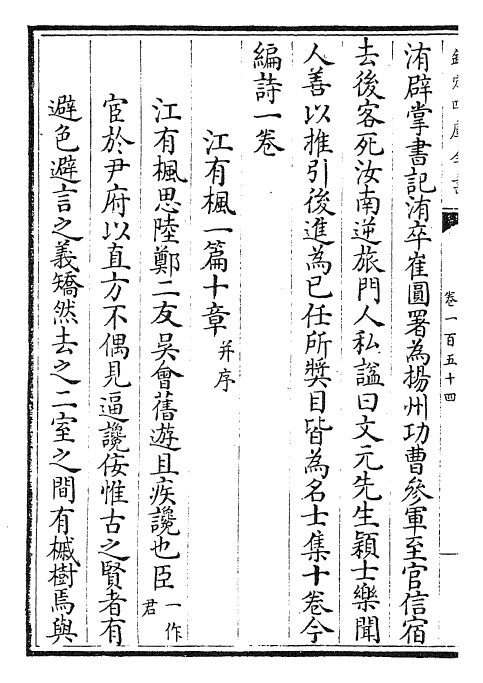 欽定四庫全書
卷一百五十四
洧辟掌書記洧卒崔圓署為揚州功曹參軍至官信宿
去後客死汝南逆旅門人私諡曰文元先生穎士樂聞
人善以推引後進為已任所奬目皆為名士集十卷今
編詩一卷
江有楓一篇十章并序
江有楓思陸鄭二友吳會舊遊且疾讒也臣一作君
宦於尹府以直方不偶見逼讒佞惟古之賢者有
避色避言之義矯然去之二室之間有槭樹焉與